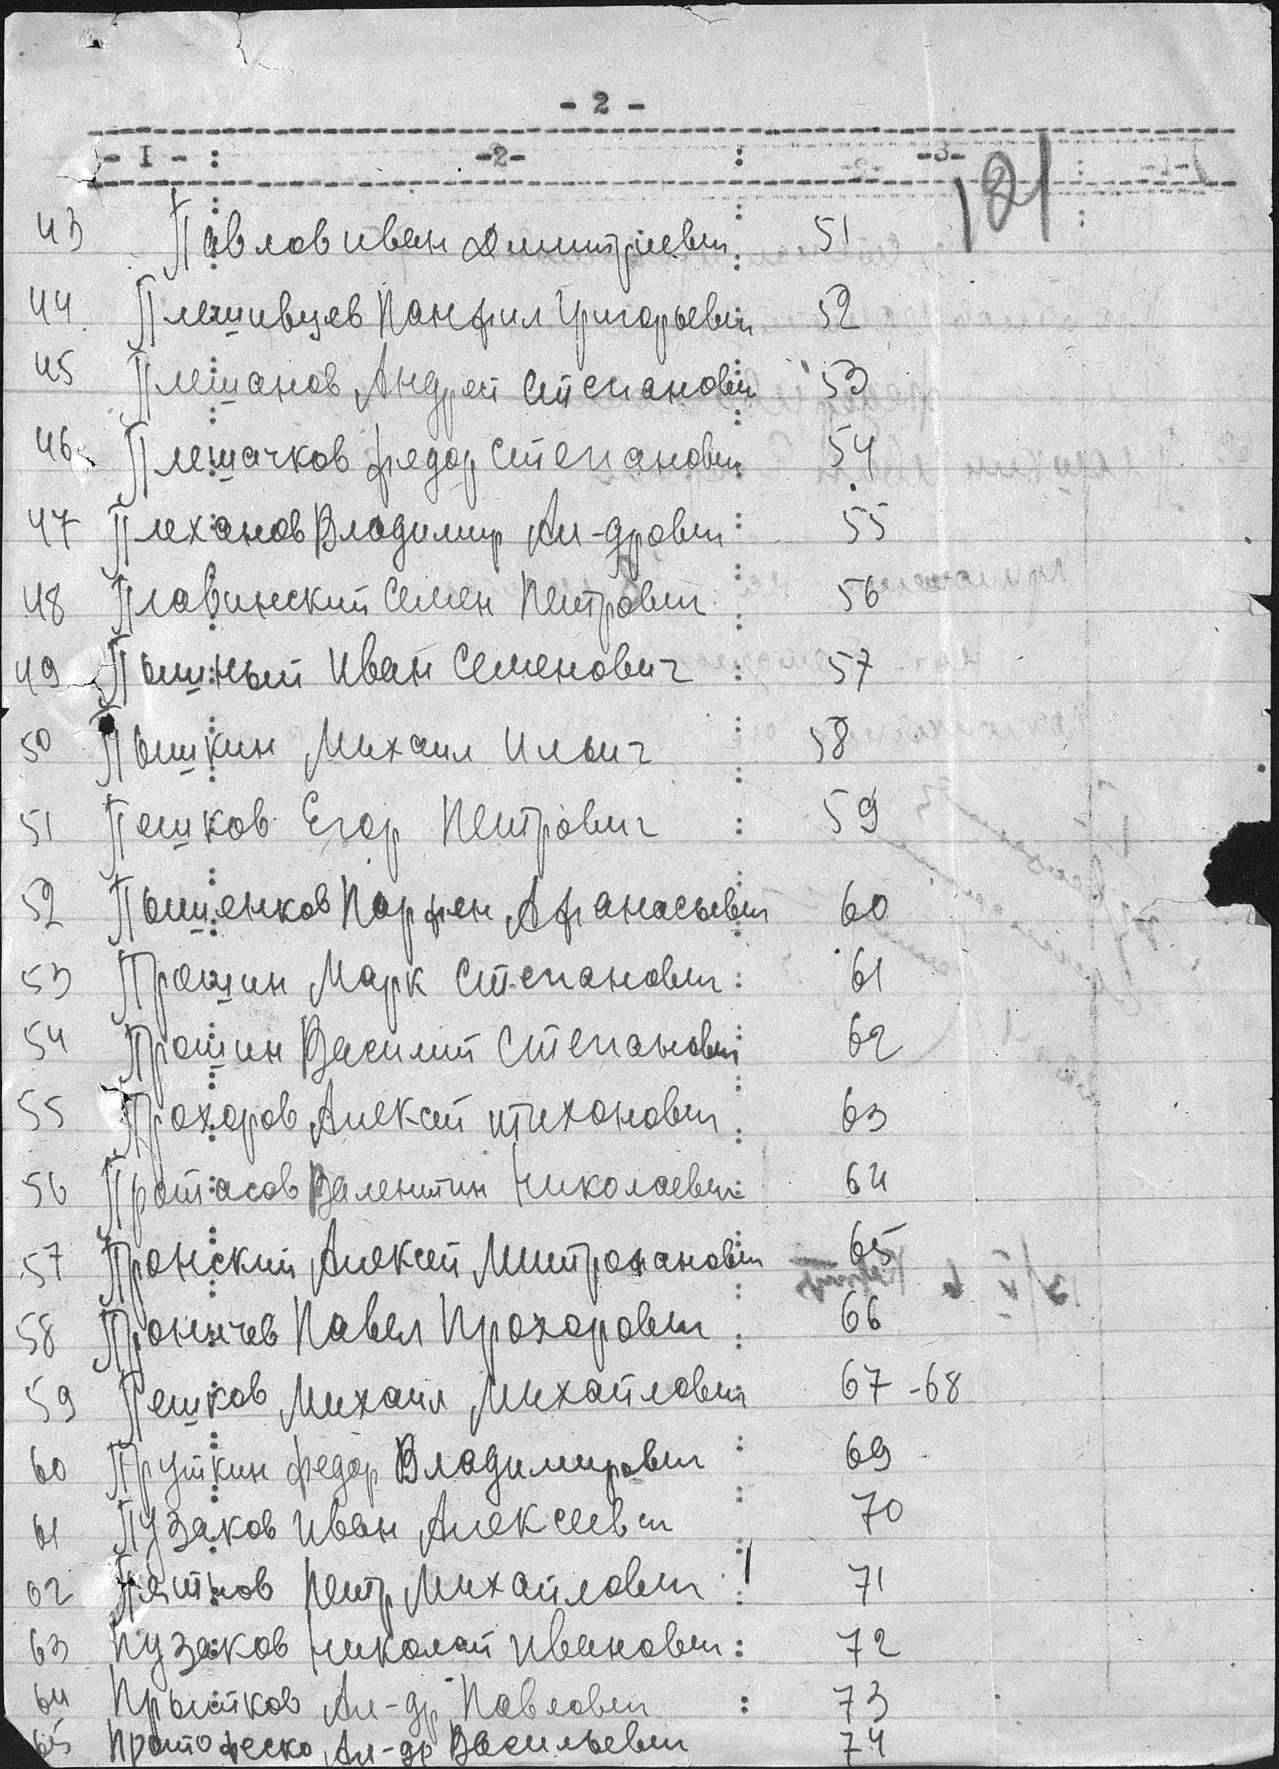 - 2 -
- I - : -2- : -3-
181
43 Павлов Иван Дмитриевич 51
44 Плешивцев Панфил Григорьевич 52
45 Плешанов Андрей Степанович 53
46 Плешачков Федор Степанович 54
47 Плеханов Владимир Ал-дрович 55
48 Плавинский Семен Петрович 56
49 Пышный Иван Семенович 57
50 Пышкин Михаил Ильич 58
51 Пешков Егор Петрович 59
52 Пышенков Парфен Афанасьевич 60
53 Прошин Марк Степанович 61
54 Прошин Василий Степанович 62
55 Прохоров Алексей Тихонович 63
56 Протасов Валентин Николаевич 64
57 Пронский Алексей Митрофанович 65
58 Проничев Павел Прохорович 66
59 Пешков Михаил Михайлович 67-68
60 Пруткин Федор Владимирович 69
61 Пузаков Иван Алексеевич 70
62 Пятнов Петр Михайлович 71
63 Пузаков Николай Иванович 72
64 Прытков Ал-др Павлович 73
65 Ал-др Васильевич 74